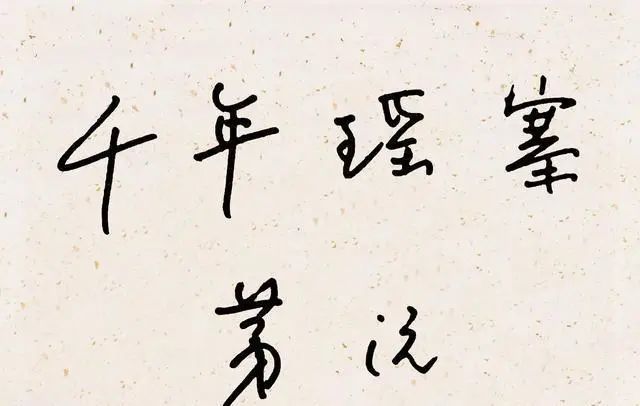 千年瑶寨
茅沅